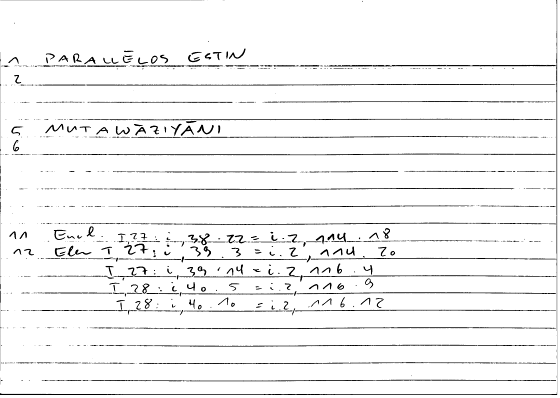 1 PARALLĒLOS ESTIN
2
5 MUTAWĀZIYĀNI
6
11 Eucl. I,27: i,38.22 = i.2, 114.18
12 Elem I,27: i,39.3 = i.2, 114.20
I,27: i,39.14 = i.2, 116.4
I,28: i,40.5 = i.2, 116.9
I,28: i,40.10 = i.2, 116.12